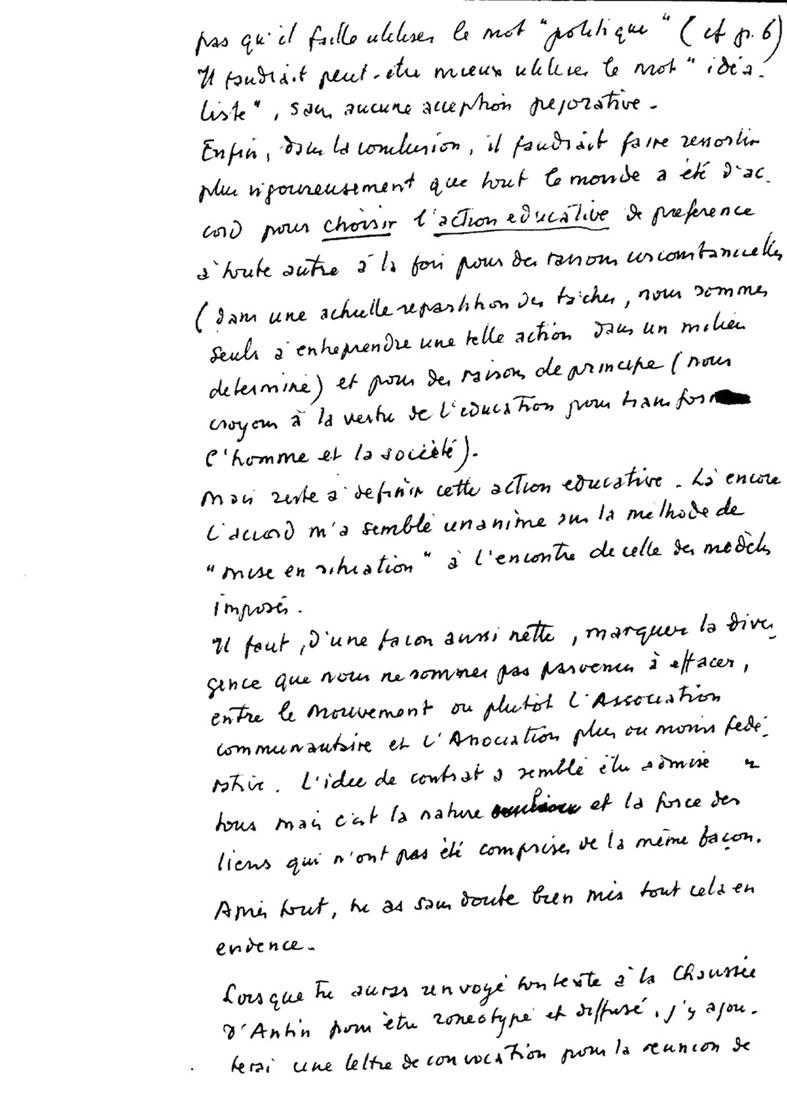 pas qu'il faille utiliser le mot "politique" (cf p. 6)
Il faudrait peut-etre mieux utiliser le mot "idéa-
liste", sans aucune acception pejorative -
Enfin, dans la conclusion, il faudrait faire ressortir
plus vigoureusement que tout le monde a été d'ac-
cord pour choisir l'action educative de preference
à toute autre à la fois pour des raisons circonstancielles
(dans une actuelle repartition des tâches, nous sommes
seuls à entreprendre une telle action dans un milieu
determiné) et pour des raisons de principe (nous
croyons à la vertu de l'education pour transfor
l'homme et la société).
Mais reste à definir cette action educative - Là encore
l'accord m'a semblé unanime sur la méthode de
"mise en situation" à l'encontre de celle des modèles
imposés.
Il faut, d'une facon aussi nette, marquer la diver-
gence que nous ne sommes pas parvenus à effacer,
entre le Mouvement ou plutôt l'Association
communautaire et l'Association plus ou moins fedé-
rative. L'idée de contrat a semblé être admise
tous mais c'est la nature et la force des
liens qui n'ont pas été comprises de la même façon.
Après tout, tu as sans doute bien mis tout cela en
evidence -
Lorsque tu auras renvoyé ton texte à la Chaussée
d'Antin pour être roneotypé et diffusé, j'y ajou-
terai une lettre de convocation pour la reunion de